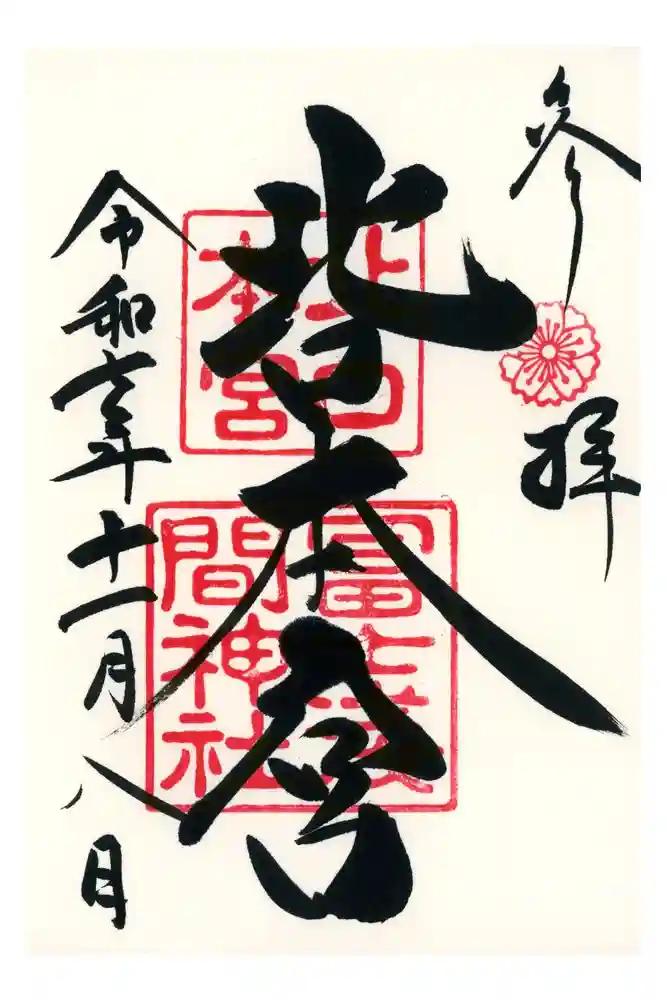 参拝
北口本宮
北口
本宮
冨士浅
間神社
令和六年十一月八日